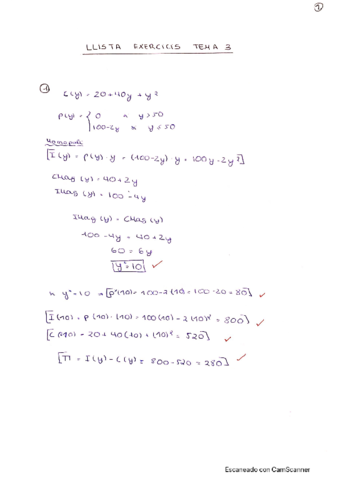 1
LLISTA EXERCICIS TEMA 3
C(y) = 20+40y + y²
p(y) = { 0 si y > 50
100-2y si y ≤ 50
Monopoli
[I(y) = p(y) · y = (100-2y) · y = 100y - 2y²]
CMag (y) = 40 + 2y
IMag (y) = 100 - 4y
IMag (y) = CMag (y)
100 - 4y = 40 + 2y
60 = 6y
y* = 10 ✓
si y* = 10 → [p*(10) = 100 - 2(10) = 100 - 20 = 80] ✓
[I(10) = p(10) · (10) = 100(10) - 2(10)² = 800] ✓
[C(10) = 20 + 40(10) + (10)² = 520] ✓
[Π = I(y) - C(y) = 800 - 520 = 280] ✓
Escaneado con CamScanner